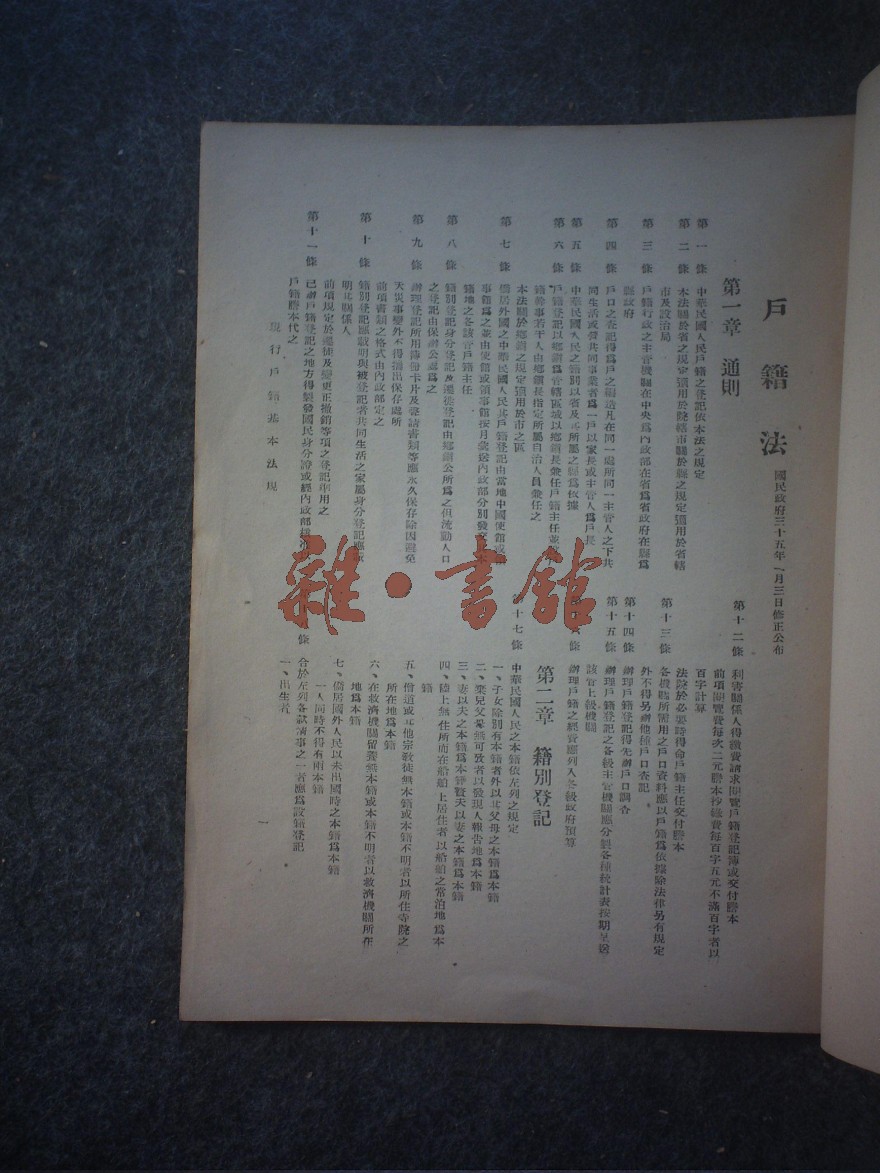 戶籍法
國民政府三十五年一月三日修正公布
第一章 通則
第一條 中華民國人民戶籍之登記依本法之規定
第二條 本法關於省之規定適用於院轄市關於縣之規定適用於省轄
市及設治局
第三條 戶籍行政之主管機關在中央為內政部在省為省政府在縣為
縣政府
第四條 戶口之查記得為戶之編造凡在同一處所同一主管人之下共
同生活或營共同事業者為一戶以家長或主管人為戶長
第五條 中華民國人民之籍別以省及其所屬之縣為依據
第六條 戶籍登記以鄉鎮為管轄區域以鄉鎮長兼任戶籍主任並
籍幹事若干人由鄉鎮長指定所屬自治人員兼任之
本法關於鄉鎮之規定適用於市之區
第七條 僑居外國之中華民國人民其戶籍登記由當地中國使館或
事館為之並由使館或領事館按月彙送內政部分別發交
籍地之各該管戶籍主任
第八條 籍別登記身分登記及遷徙登記由鄉鎮公所為之但流動人口
之登記由保辦公處為之
第九條 辦理登記所用簿冊卡片及聲請書類等應永久保存除因避免
天災事變外不得攜出保存處所
前項書類之格式由內政部定之
第十條 籍別登記應載明與被登記者共同生活之家屬身分登記應
明其關係人
前項規定於遷徙及變更正撤銷等項之登記準用之
第十一條 已辦戶籍登記之地方得製發國民身分證或經內政部核准
戶籍謄本代之
第十二條 利害關係人得繳費請求閱覽戶籍登記簿或交付謄本
前項閱覽費每次二元謄本抄錄費每百字五元不滿百字者以
百字計算
法院於必要時得命戶籍主任交付謄本
第十三條 各機關所需用之戶口資料應以戶籍為依據除法律另有規定
外不得另辦他種戶口查記
第十四條 辦理戶籍登記得先辦戶口調查
第十五條 辦理戶籍登記之各級主管機關應分製各種統計表按期呈送
該管上級機關
條 辦理戶籍之經費應列入各級政府預算
第二章 籍別登記
十七條 中華民國人民之本籍依左列之規定
一、子女除別有本籍者外以其父母之本籍為本籍
二、棄兒父母無可攷者以發現人報告地為本籍
三、妻以夫之本籍為本籍贅夫以妻之本籍為本籍
四、陸上無住所而在船舶上居住者以船舶之常泊地為本
籍
五、僧道或其他宗教徒無本籍或本籍不明者以所住寺院之
所在地為本籍
六、在救濟機關留養無本籍或本籍不明者以救濟機關所在
地為本籍
七、僑居國外人民以未出國時之本籍為本籍
一人同時不得有兩本籍
條 合於左列各款情事之一者應為設籍登記
一、出生者
現行戶籍基本法規
一
雜·書館